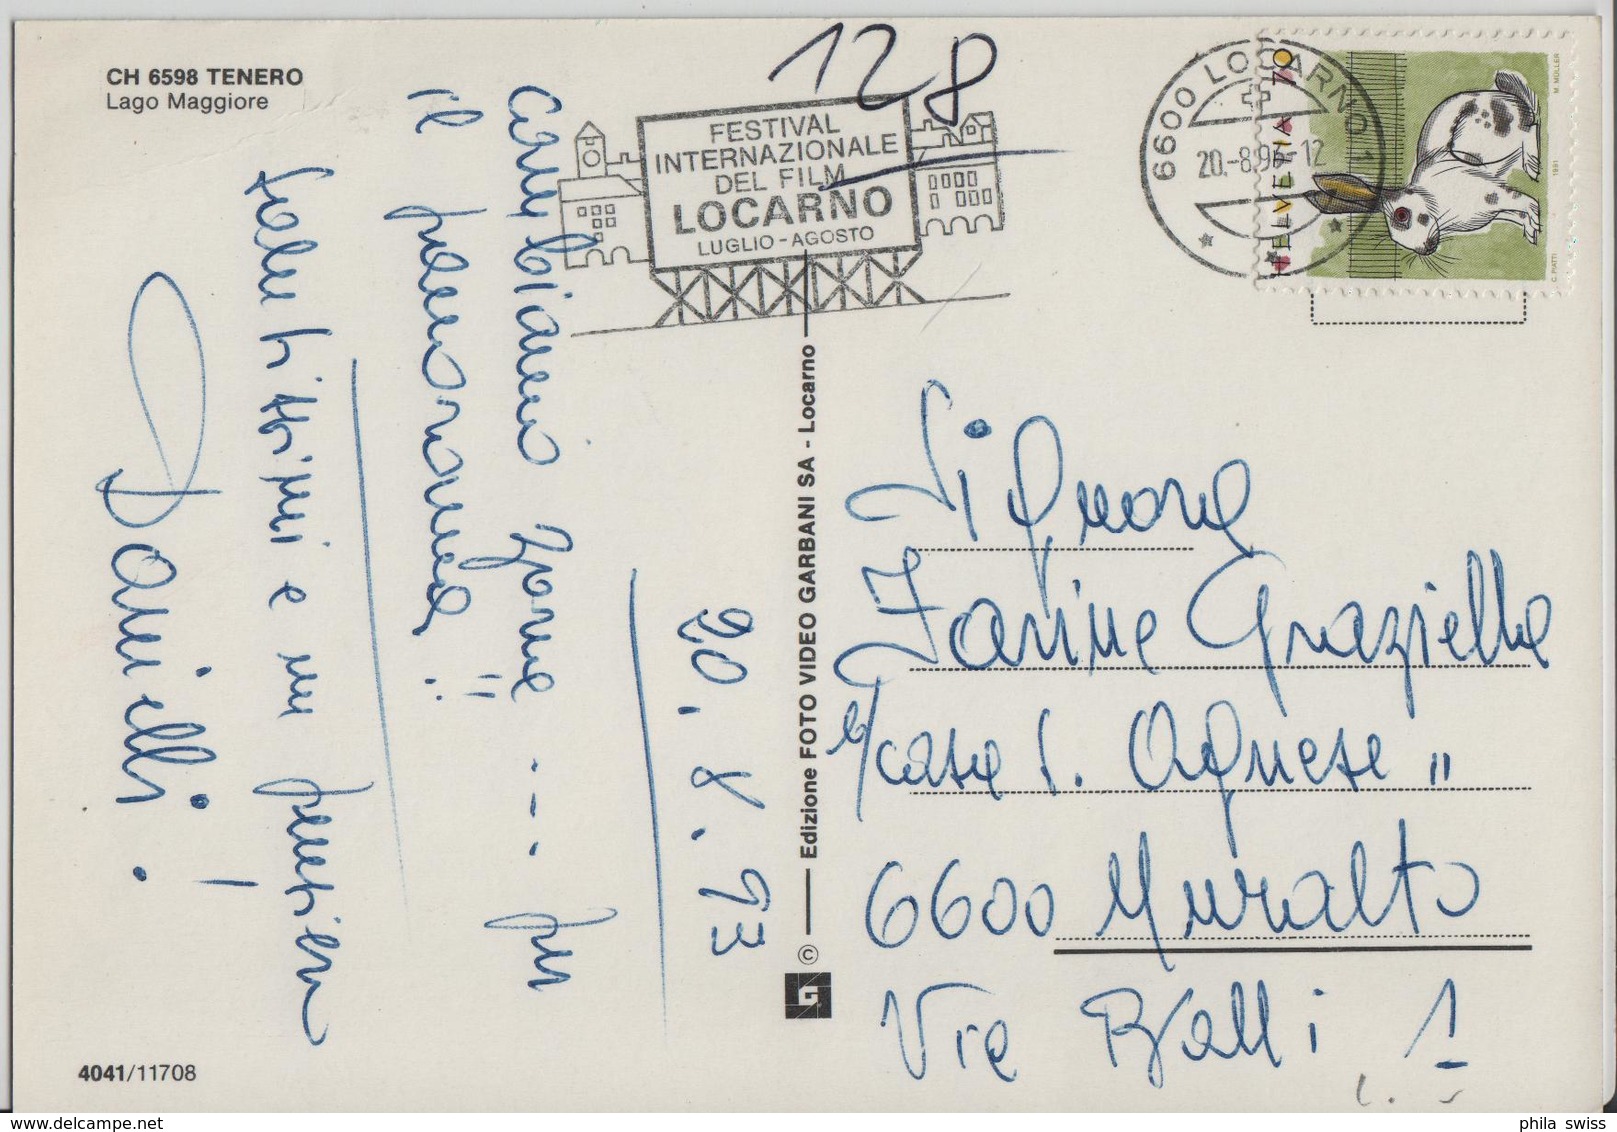 CH 6598 TENERO
Lago Maggiore
128
FESTIVAL
INTERNAZIONALE
DEL FILM
LOCARNO
LUGLIO - AGOSTO
6600 LOCARNO 1
20.-8.93-12
HELVETIA 70
M. MÜLLER
1991
C. PIATTI
20.8.93
Cambiamo zona .... per
il panorama!!
Salutissimi e un pensiero
Danielli!
© Edizione FOTO VIDEO GARBANI SA - Locarno
Signora
Zanine Graziella
c/casa S. Agnese"
6600 Muralto
Via Balli 1
4041/11708
phila swiss